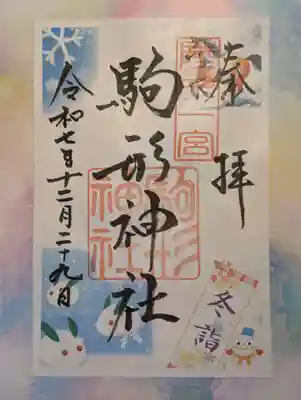 奉拝
駒形神社
令和七年十二月二十九日
一宮
駒形
神社
冬詣